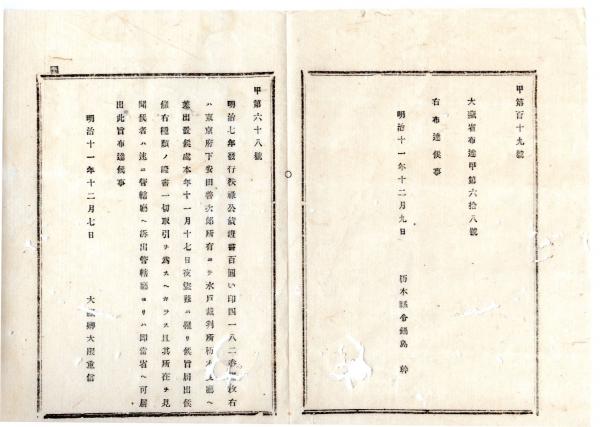 甲第百十九號
大藏省布達甲第六拾八號
右布達候事
明治十一年十二月九日
栃木縣令鍋島幹
甲第六十八號
明治七年發行秩祿公債證書百圓い印四一八二番壹枚右
ハ東京府下安田善次郎所有ニシテ水戸裁判所栃木支廳ヘ
差出置候處本年十一月十七日夜盜難ニ罹リ候旨届出候
條右種類ノ證書一切取引ヲ爲スヘカラス且其所在ヲ見
聞候者ハ速ニ管轄廳ヘ訴出管轄廳ヨリハ即當省ヘ可届
出此旨布達候事
明治十一年十二月七日
大藏卿大隈重信